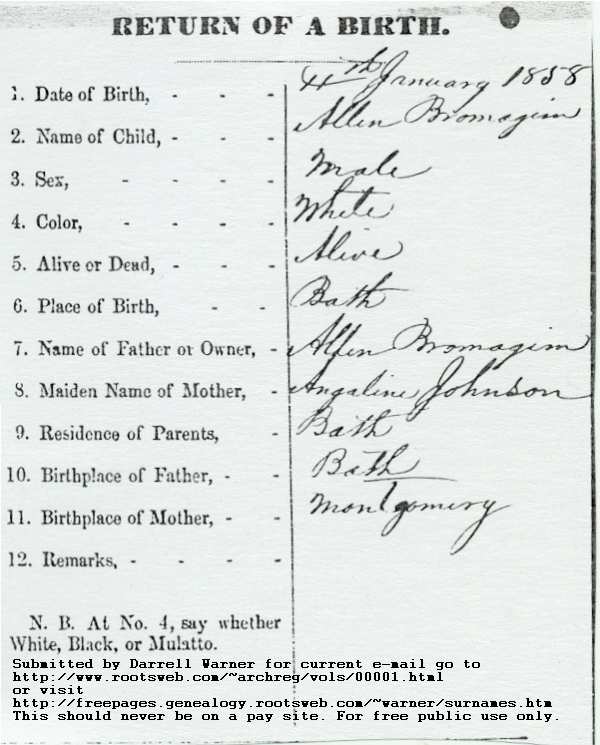 RETURN OF A BIRTH.
1. Date of Birth, - - - 4th January 1858
2. Name of Child, - - - Allen Bromagim
3. Sex, - - - - Male
4. Color, - - - - White
5. Alive or Dead, - - - Alive
6. Place of Birth, - - Bath
7. Name of Father or Owner, - Allen Bromagim
8. Maiden Name of Mother, - Angaline Johnson
9. Residence of Parents, - Bath
10. Birthplace of Father, - - Bath
11. Birthplace of Mother, - - Montgomery
12. Remarks, - - - -
N. B. At No. 4, say whether
White, Black, or Mulatto.
Submitted by Darrell Warner for current e-mail go to
http://www.rootsweb.com/~archreg/vols/00001.html
or visit
http://freepages.genealogy.rootsweb.com/~warner/surnames.htm
This should never be on a pay site. For free public use only.